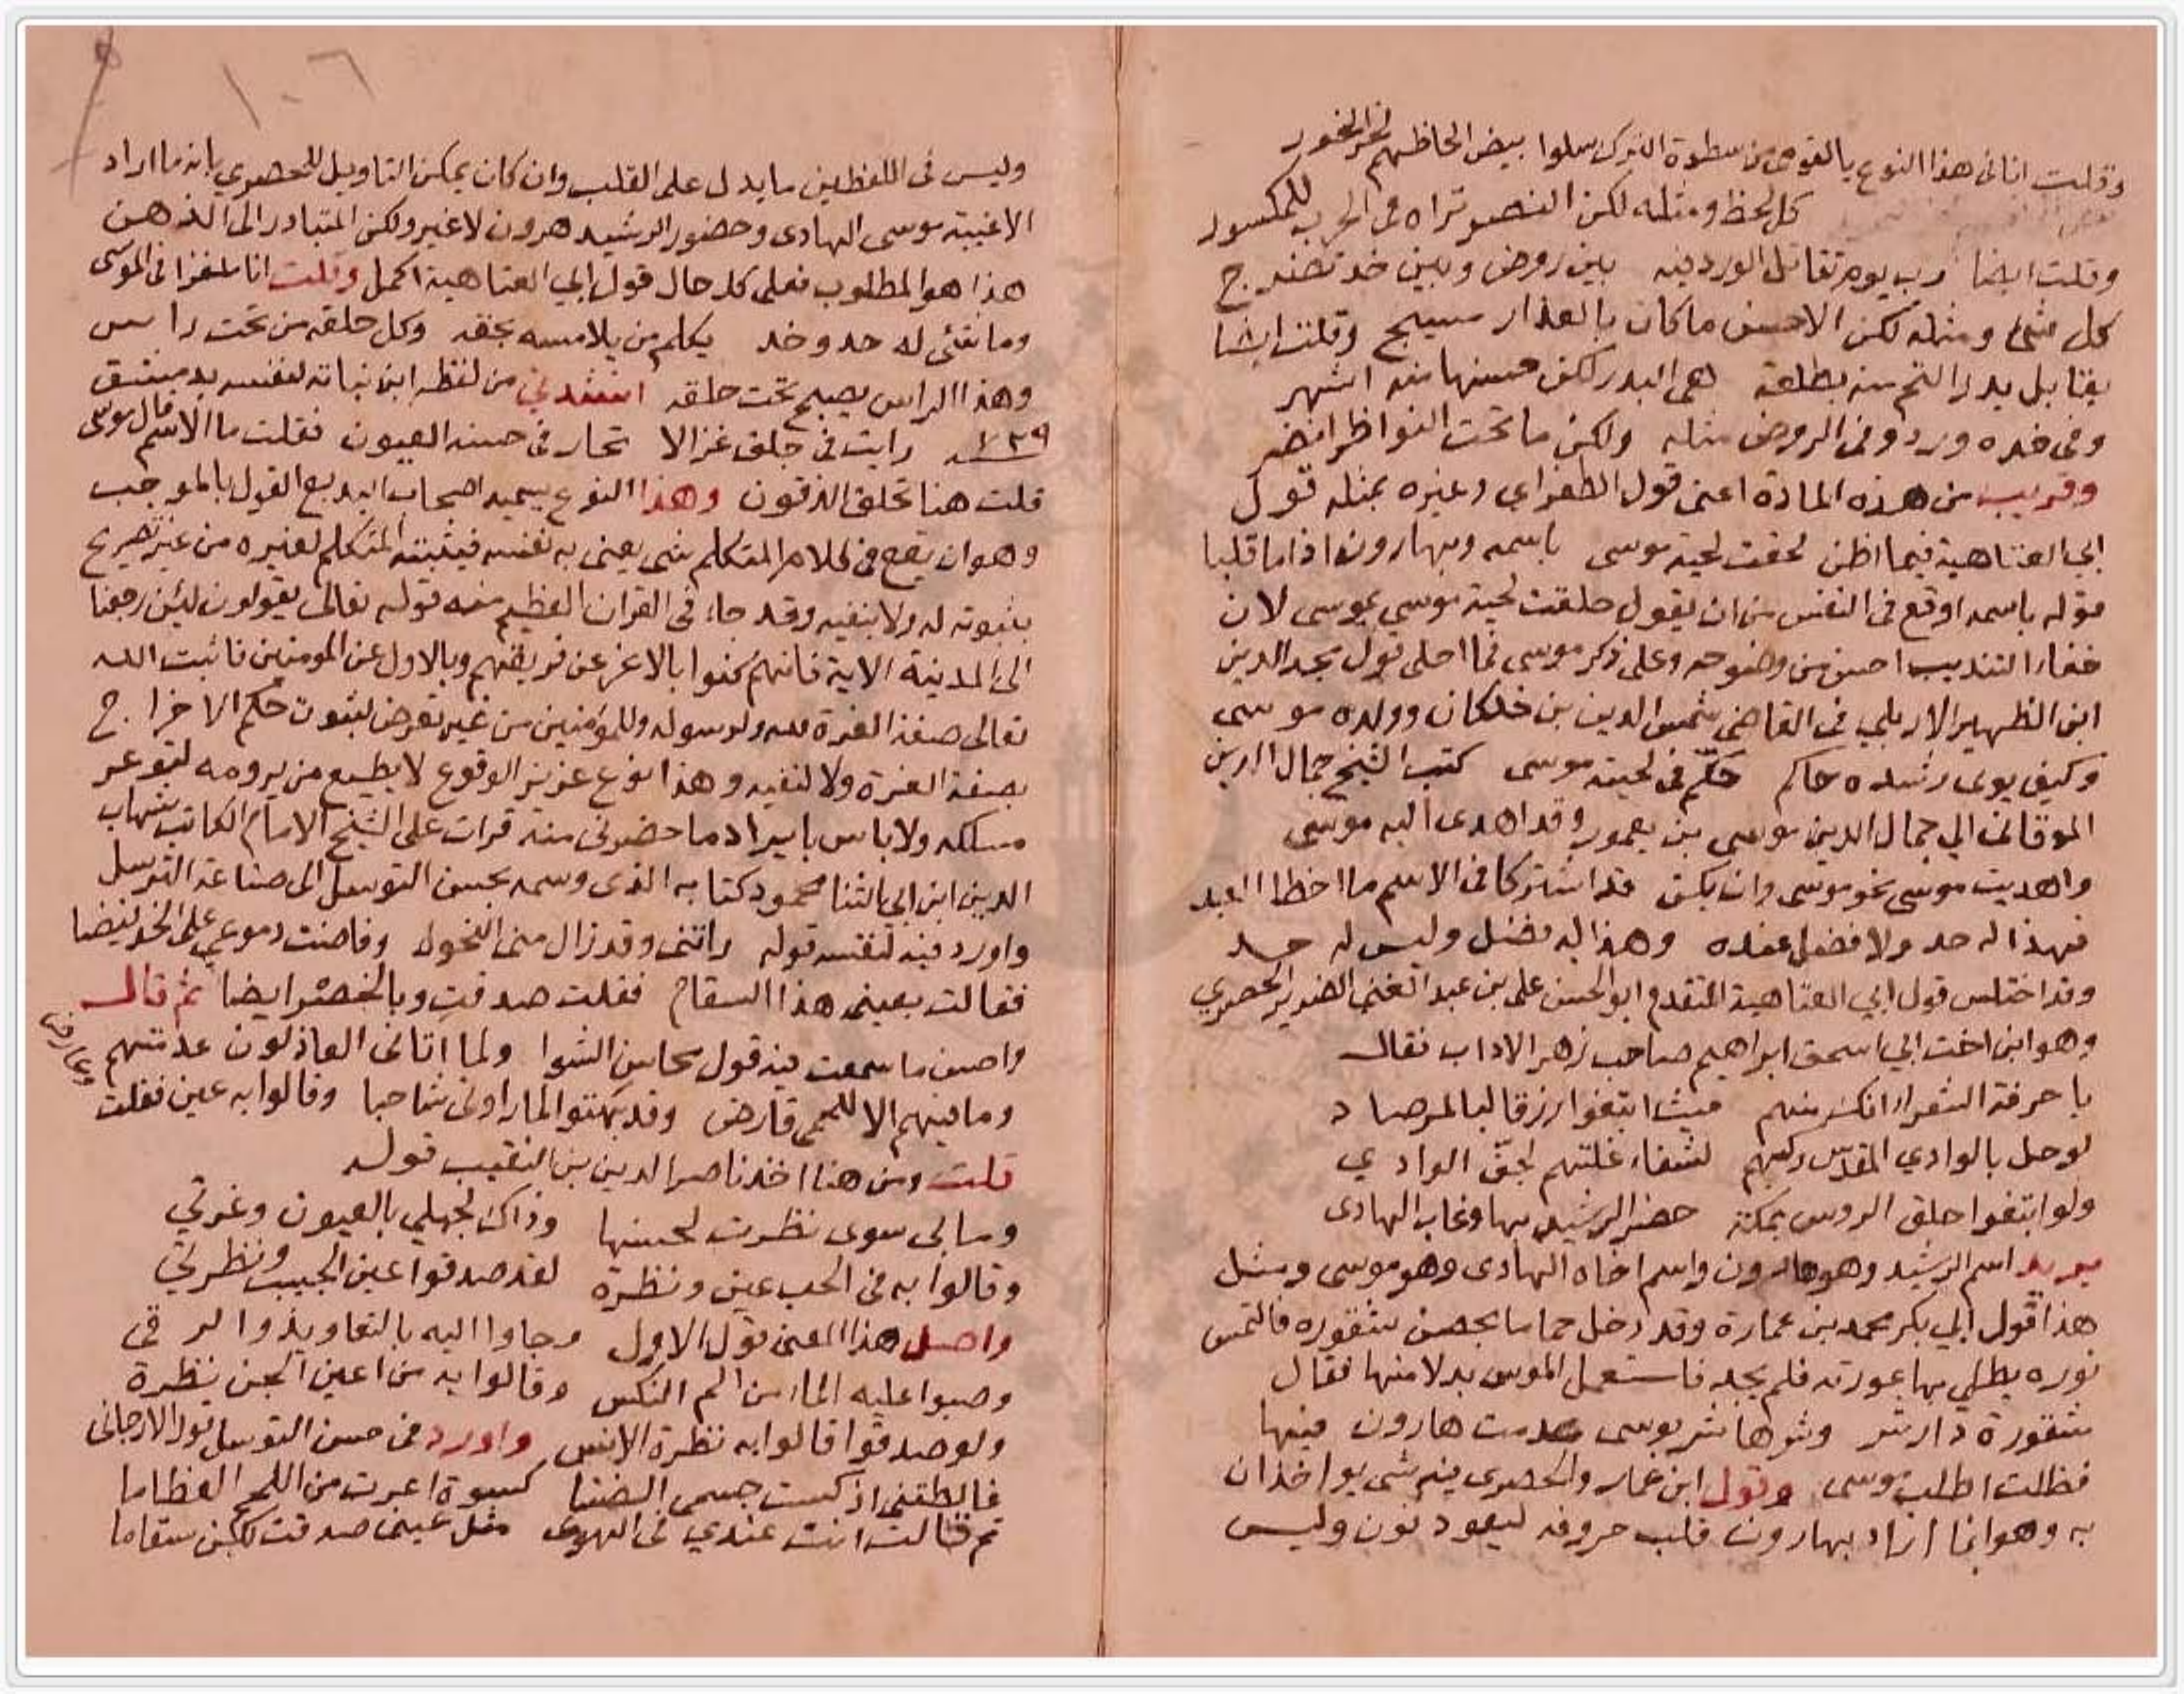 وقلت انا في هذا النوع يا لقومي من سطوة الترك سلوا بيض الحاظهم لنحر النحور
كل لحظ ومثله لكن النصر تراه في الحرب للمكسور
وقلت ايضا رب يوم تقاتل الورد فيه بين روض وبين خد تضرج
كل شي ومثله لكن الاحسن ما كان بالعذار مسيج وقلت ايضا
يقابل بدر التم منه بطلعة هي البدر لكن حسنها منه اشهر
وفي خده ورد وفي الروض مثله ولكن ما تحت النواظر انضر
وقريب من هذه المادة اعني قول الطغراي وغيره بمثله قول
ابي العتاهية فيما اظن لحقت لحية موسى باسمه وبهارون اذا ما قلبا
قوله باسمه اوقع في النفس من ان يقول حلقت لحية موسي بموسى لان
خفاء التنديب احسن من وضوحه وعلى ذكر موسى فما احلى قول مجد الدين
ابن الظهير الاربلي في القاضي شمس الدين بن خلكان وولده موسى
وكيف يوى رشده حاكم حكّم في لحيته موسى كتب الشيخ جمال الدين
الموقاني الي جمال الدين موسى بن يغمور وقد اهدى اليه موسى
واهديت موسى نحو موسى وان يكن قد اشتركا في الاسم ما اخطا العبد
فهذا له حد ولا فضل عنده وهذا له فضل وليس له حد
وقد اختلس قول ابي العتاهية المتقدم ابو الحسن علي بن عبد الغني الضرير الحصري
وهو ابن اخت ابي اسحق ابراهيم صاحب زهر الاداب فقال
يا حرفة الشعراء انكر منهم حيث ابتغوا رزقا لبالمرصاد
لو حل بالوادي المقدّس ركبهم لشفاء غلتهم لجفّ الوادي
ولو ابتغوا حلق الروس بمكة حضر الرشيد بها وغاب الهادى
يريد اسم الرشيد وهو هارون واسم اخاه الهادى وهو موسى ومثل
هذا قول ابي بكر محمد بن عمارة وقد دخل حماما بحصن شقوره فالتمس
نوره يطلي بها عورته فلم يجد فاستعمل الموس بدلا منها فقال
شقورة دار شر وشوها شر بوسى عدمت هارون فيها
فظلت اطلب موسى وقول ابن عمار والحصري فيهم شي يواخذان
به وهو انما اراد بهارون قلب حروفه ليعود نون وليس
وليس في اللفظين ما يدل على القلب وان كان يمكن التاويل للحصري بانه ما اراد
الا غيبة موسى الهادى وحضور الرشيد هرون لا غير ولكن المتبادر الى الذهن
هذا هو المطلوب فعلى كل حال قول ابي العتاهية اكمل وقلت انا ملغزا في الموسى
وما شي له حد وخد يكلم من يلامسه بحقه وكل حلقه من تحت راس
وهذا الراس يصبح تحت حلقه انشدني من لفظه ابن نباته لنفسه بدمشق
٧٢٩ سنه رايت في جلق غزالا تحار في حسنه العيون فقلت ما الاسم قال موسى
قلت هنا تحلق الذقون وهذا النوع يسميه اصحاب البديع القول بالموجب
وهو ان يقع في كلام المتكلم شي يعني به نفسه فيثبته المتكلم لغيره من غير تصريح
بثبوته له ولا بنفيه وقد جاء في القران العظيم منه قوله تعالى يقولون لئن رجعنا
الى المدينة الاية فانهم كنوا بالاعز عن فريقهم وبالاول عن المومنين فاثبت الله
تعالى صفة العزة لله ولرسوله وللمؤمنين من غير تعرض لثبوت حكم الاخراج
بصفة العزة ولا لنفيه وهذا نوع عزيز الوقوع لا يطيع من يرومه لتوعر
مسلكه ولا باس بايراد ما حضرني منه قرات على الشيخ الامام الكاتب شهاب
الدين ابن ابي الثنا محمود كتابه الذى وسمه بحسن التوسل الى صناعة الترسل
واورد فيه لنفسه قوله راتني وقد زال مني النحول وفاضت دموعي على الخد فيضا
فقالت بعيني هذا السقام فقلت صدقت وبالخصر ايضا ثم قال
واحسن ما سمعت فيه قول محاسن الشوا ولما اتاني العاذلون عدمتهم
وما فيهم الا للحمى قارض وقد بهتوا لما راونى شاحبا وقالوا به عين فقلت
وعارض
قلت ومن هنا اخذ ناصر الدين بن النقيب قوله
وما بى سوى نظرت لحسنها وذاك لجهلي بالعيون وغرتي
وقالوا به في الحب عين ونظرة لقد صدقوا عين الحبيب ونظرتي
واصل هذا المعنى قول الاول وجاوا اليه بالتعاويذ والرقى
وصبوا عليه الماء من الم النكس وقالوا به من اعين الجن نظرة
ولو صدقوا قالوا به نظرة الانس واورد في حسن التوسل قول الارجاني
غالطتني اذ كست جسمى الضنا كسوة اعرت من اللحم العظاما
ثم قالت انت عندي في الهوى مثل عيني صدقت لكن سقاما